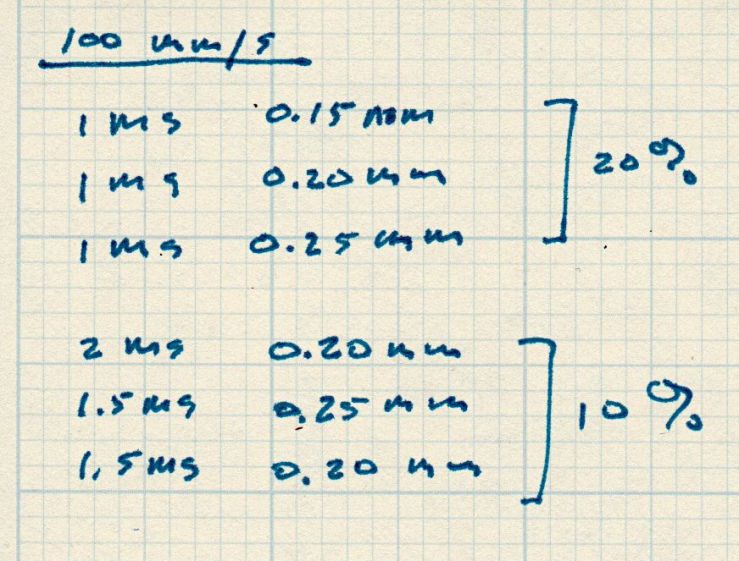 100 mm/s
1 ms 0.15 mm
1 ms 0.20 mm 20%
1 ms 0.25 mm
2 ms 0.20 mm
1.5 ms 0.25 mm 10%
1,5 ms 0.20 mm